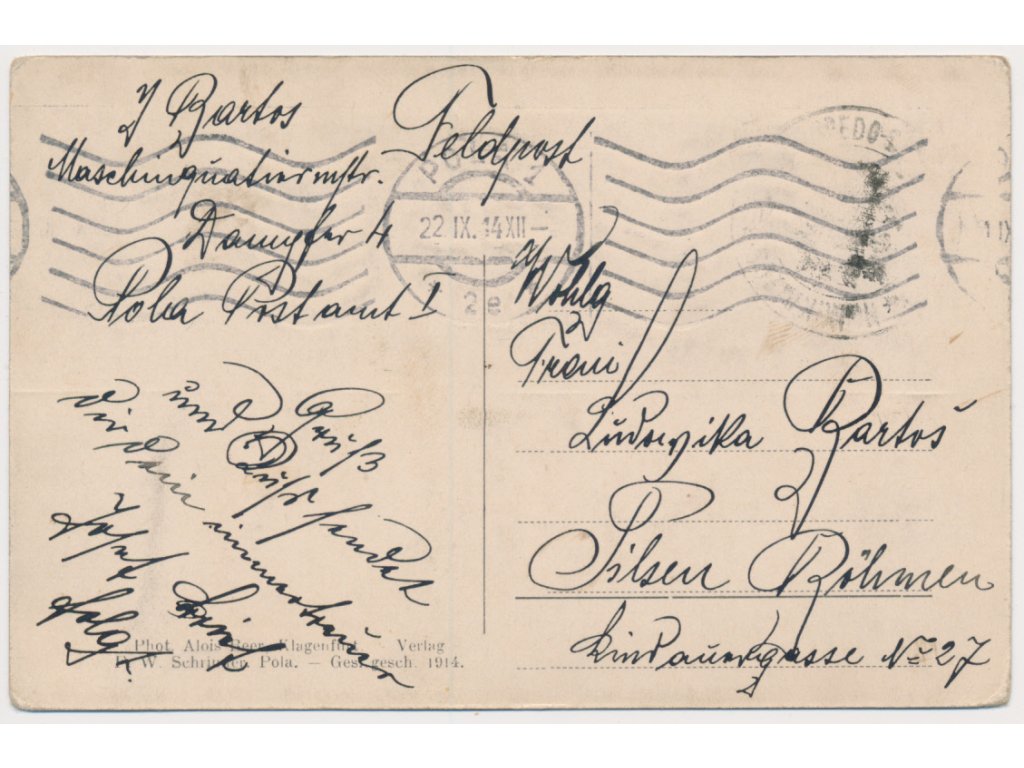 J Bartos
Maschinquatiermstr.
Dampfer 4
Pola Postamt I
Feldpost
POLA 1
22 IX. 14 XII –
2e
Wohlg
Frau
Ludovika Bartoš
Pilsen Böhmen
Lindauergasse № 27
Gruß
und Kuß sendet
dir dein immertreuer
Josef
Phot. Alois Beer, Klagenfurt. Verlag
F. W. Schrinner, Pola. – Ges. gesch. 1914.